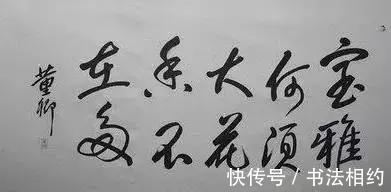 室雅
何須
大花
香不
在多
董卿
快传号 / 书法相约